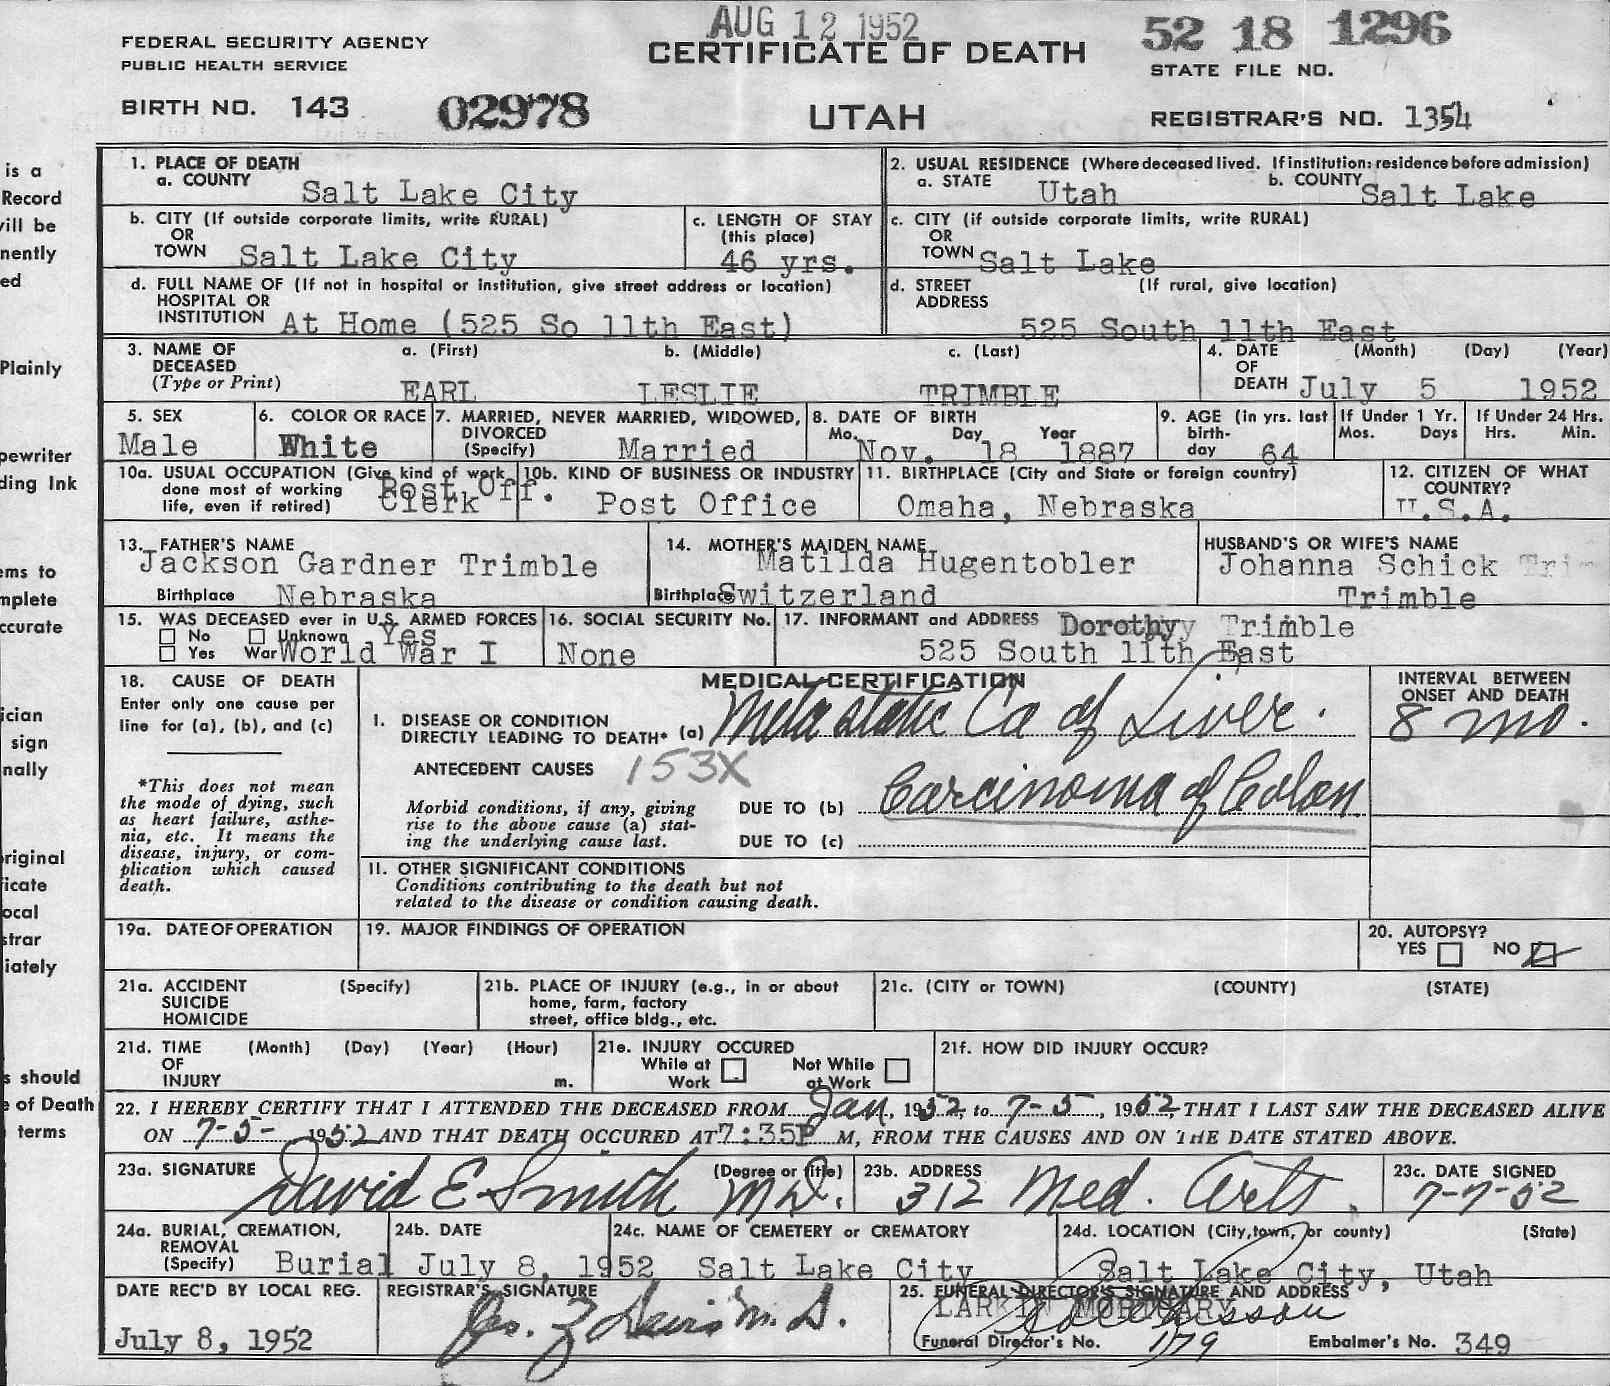 AUG 12 1952
FEDERAL SECURITY AGENCY
PUBLIC HEALTH SERVICE
CERTIFICATE OF DEATH
52 18 1296
STATE FILE NO.
BIRTH NO. 143 02978
UTAH
REGISTRAR'S NO. 1354
is a
Record
will be
nently
ed
Plainly
pewriter
ding Ink
ems to
mplete
ccurate
ician
sign
nally
original
icate
ocal
strar
iately
s should
e of Death
terms
1. PLACE OF DEATH
a. COUNTY Salt Lake City
2. USUAL RESIDENCE (Where deceased lived. If institution: residence before admission)
a. STATE Utah b. COUNTY Salt Lake
b. CITY (If outside corporate limits, write RURAL)
OR
TOWN Salt Lake City
c. LENGTH OF STAY
(this place)
46 yrs.
c. CITY (if outside corporate limits, write RURAL)
OR
TOWN Salt Lake
d. FULL NAME OF (If not in hospital or institution, give street address or location)
HOSPITAL OR
INSTITUTION At Home (525 So 11th East)
d. STREET (If rural, give location)
ADDRESS
525 South 11th East
3. NAME OF a. (First) b. (Middle) c. (Last)
DECEASED
(Type or Print) EARL LESLIE TRIMBLE
4. DATE (Month) (Day) (Year)
OF
DEATH July 5 1952
5. SEX
Male
6. COLOR OR RACE
White
7. MARRIED, NEVER MARRIED, WIDOWED,
DIVORCED
(Specify) Married
8. DATE OF BIRTH
Mo. Day Year
Nov. 18 1887
9. AGE (in yrs. last
birth-
day 64
If Under 1 Yr.
Mos. Days
If Under 24 Hrs.
Hrs. Min.
10a. USUAL OCCUPATION (Give kind of work
done most of working
life, even if retired)
Post Off.
Clerk
10b. KIND OF BUSINESS OR INDUSTRY
Post Office
11. BIRTHPLACE (City and State or foreign country)
Omaha, Nebraska
12. CITIZEN OF WHAT
COUNTRY?
U.S.A.
13. FATHER'S NAME
Jackson Gardner Trimble
Birthplace Nebraska
14. MOTHER'S MAIDEN NAME
Matilda Hugentobler
Birthplace Switzerland
HUSBAND'S OR WIFE'S NAME
Johanna Schick Trim
Trimble
15. WAS DECEASED ever in U.S. ARMED FORCES
No Unknown Yes
Yes War World War I
16. SOCIAL SECURITY No.
None
17. INFORMANT and ADDRESS Dorothy Trimble
525 South 11th East
18. CAUSE OF DEATH
Enter only one cause per
line for (a), (b), and (c)
*This does not mean
the mode of dying, such
as heart failure, asthe-
nia, etc. It means the
disease, injury, or com-
plication which caused
death.
MEDICAL CERTIFICATION
I. DISEASE OR CONDITION
DIRECTLY LEADING TO DEATH* (a) Metastatic Ca of Liver.
INTERVAL BETWEEN
ONSET AND DEATH
8 mo.
ANTECEDENT CAUSES 153X
Morbid conditions, if any, giving
rise to the above cause (a) stat-
ing the underlying cause last.
DUE TO (b) Carcinoma of Colon.
DUE TO (c)
II. OTHER SIGNIFICANT CONDITIONS
Conditions contributing to the death but not
related to the disease or condition causing death.
19a. DATE OF OPERATION
19. MAJOR FINDINGS OF OPERATION
20. AUTOPSY?
YES NO
21a. ACCIDENT (Specify)
SUICIDE
HOMICIDE
21b. PLACE OF INJURY (e.g., in or about
home, farm, factory
street, office bldg., etc.
21c. (CITY or TOWN) (COUNTY) (STATE)
21d. TIME (Month) (Day) (Year) (Hour)
OF
INJURY m.
21e. INJURY OCCURED
While at Not While
Work at Work
21f. HOW DID INJURY OCCUR?
22. I HEREBY CERTIFY THAT I ATTENDED THE DECEASED FROM Jan, 1952, to 7-5, 1952, THAT I LAST SAW THE DECEASED ALIVE
ON 7-5- 1952 AND THAT DEATH OCCURED AT 7:35P M, FROM THE CAUSES AND ON THE DATE STATED ABOVE.
23a. SIGNATURE (Degree or title)
David E Smith M.D.
23b. ADDRESS
312 Med. Arts.
23c. DATE SIGNED
7-7-52
24a. BURIAL, CREMATION,
REMOVAL
(Specify) Burial
24b. DATE
July 8, 1952
24c. NAME OF CEMETERY or CREMATORY
Salt Lake City
24d. LOCATION (City, town, or county) (State)
Salt Lake City, Utah
DATE REC'D BY LOCAL REG.
July 8, 1952
REGISTRAR'S SIGNATURE
M.D.
25. FUNERAL DIRECTOR'S SIGNATURE AND ADDRESS
LARKIN MORTUARY
(Funeral Director's No. 1179 Embalmer's No. 349